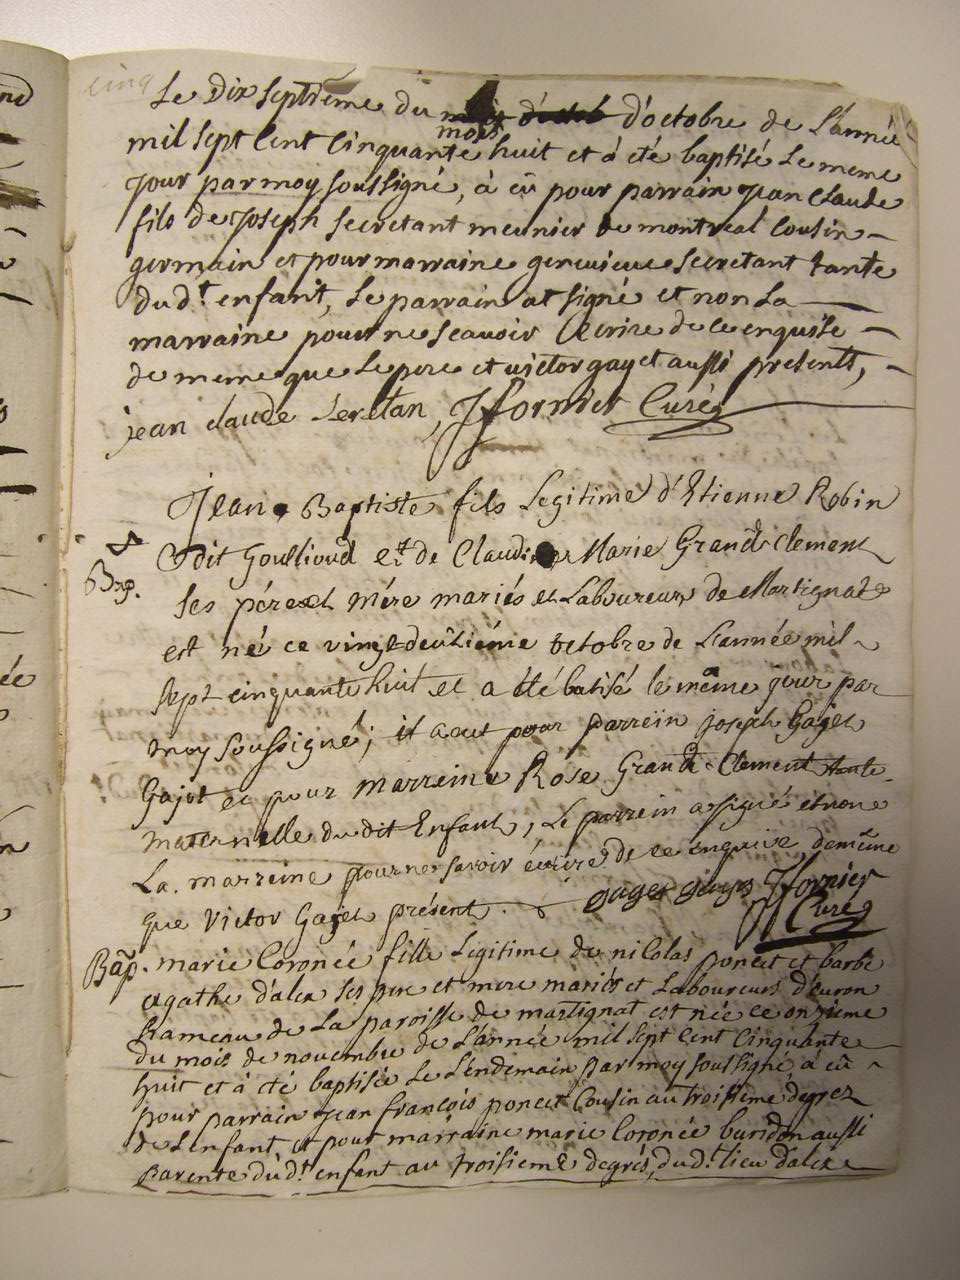 cinq
Le Dix septieme du d'octobre de L'année
mois
mil sept Cent Cinquante huit et à été baptisé Le meme
Jour par moy soussigné, à eû pour parrain Jean Claude
fils de Joseph Secretant meunier de montreal Cousin
germain et pour marraine genevieve Secretant tante
du d.t enfant, Le parrain at signé et non La
marraine pour ne scavoir Ecrire de ce enquise
de meme que Le pere et victor gayet aussi presents,
jean claude Secretan, Jfornier Curé
Jean Baptiste fils Legitime d'Etienne Robin
Bap.
dit Goullioud et de Claudine Marie Grand-Clement
ses père et mère mariés et Laboureurs de Martignat
est né ce vingt deuxième octobre de L'année mil
sept cinquante huit et a été batisé le même jour par
moy soussigné; il a eut pour parrein joseph Gajet
Gajot et pour marreine Rose Grand-Clement tante
maternelle du dit Enfant, Le parrein a signé et non
La marreine pour ne savoir écrire de ce enquise de même
que Victor Gajet présent. gaget Jfornier
Curé
Bap. marie Coronée fille Legitime de nicolas poncet et barbe
agathe d'alex ses pere et mere mariés et Laboureurs d'évron
hameau de La paroisse de martignat est née ce onzieme
du mois de novembre de L'année mil sept Cent Cinquante
huit et à été baptisée Le Lendemain par moy soussigné, à eû
pour parrain Jean françois poncet Cousin au troisieme degrez
de L'enfant et pour marraine marie Coronée buridon aussi
parente du d.t enfant au troisieme degrés, du d.t lieu d'alex